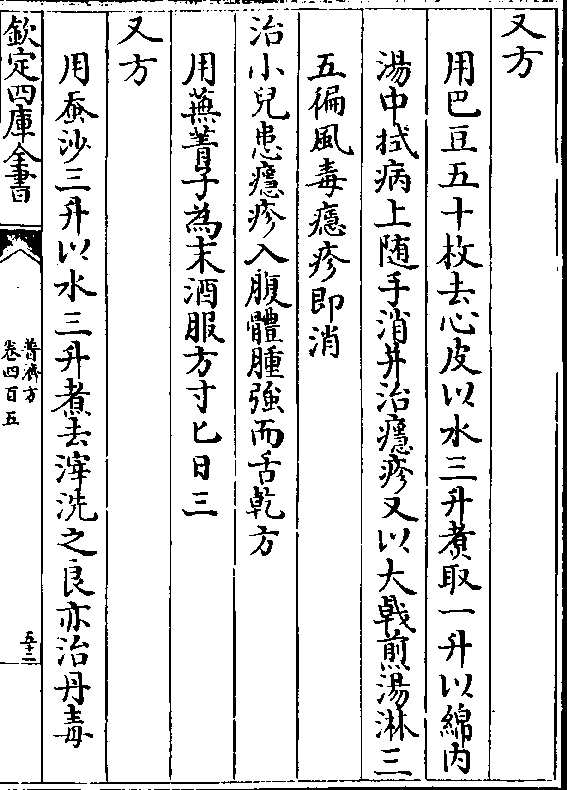 又方
用巴豆五十枚去心皮以水三升煑取一升以綿内
湯中拭病上随手消并治癮疹又以大戟煎湯淋三
五徧風毒癮疹即消
治小兒患癮疹入腹體腫強而舌乾方
用蕪菁子為末酒服方寸匕日三
又方
用蚕沙三升以水三升煮去滓洗之良亦治丹毒
欽定四庫全書
普濟方
卷四百五
五十二